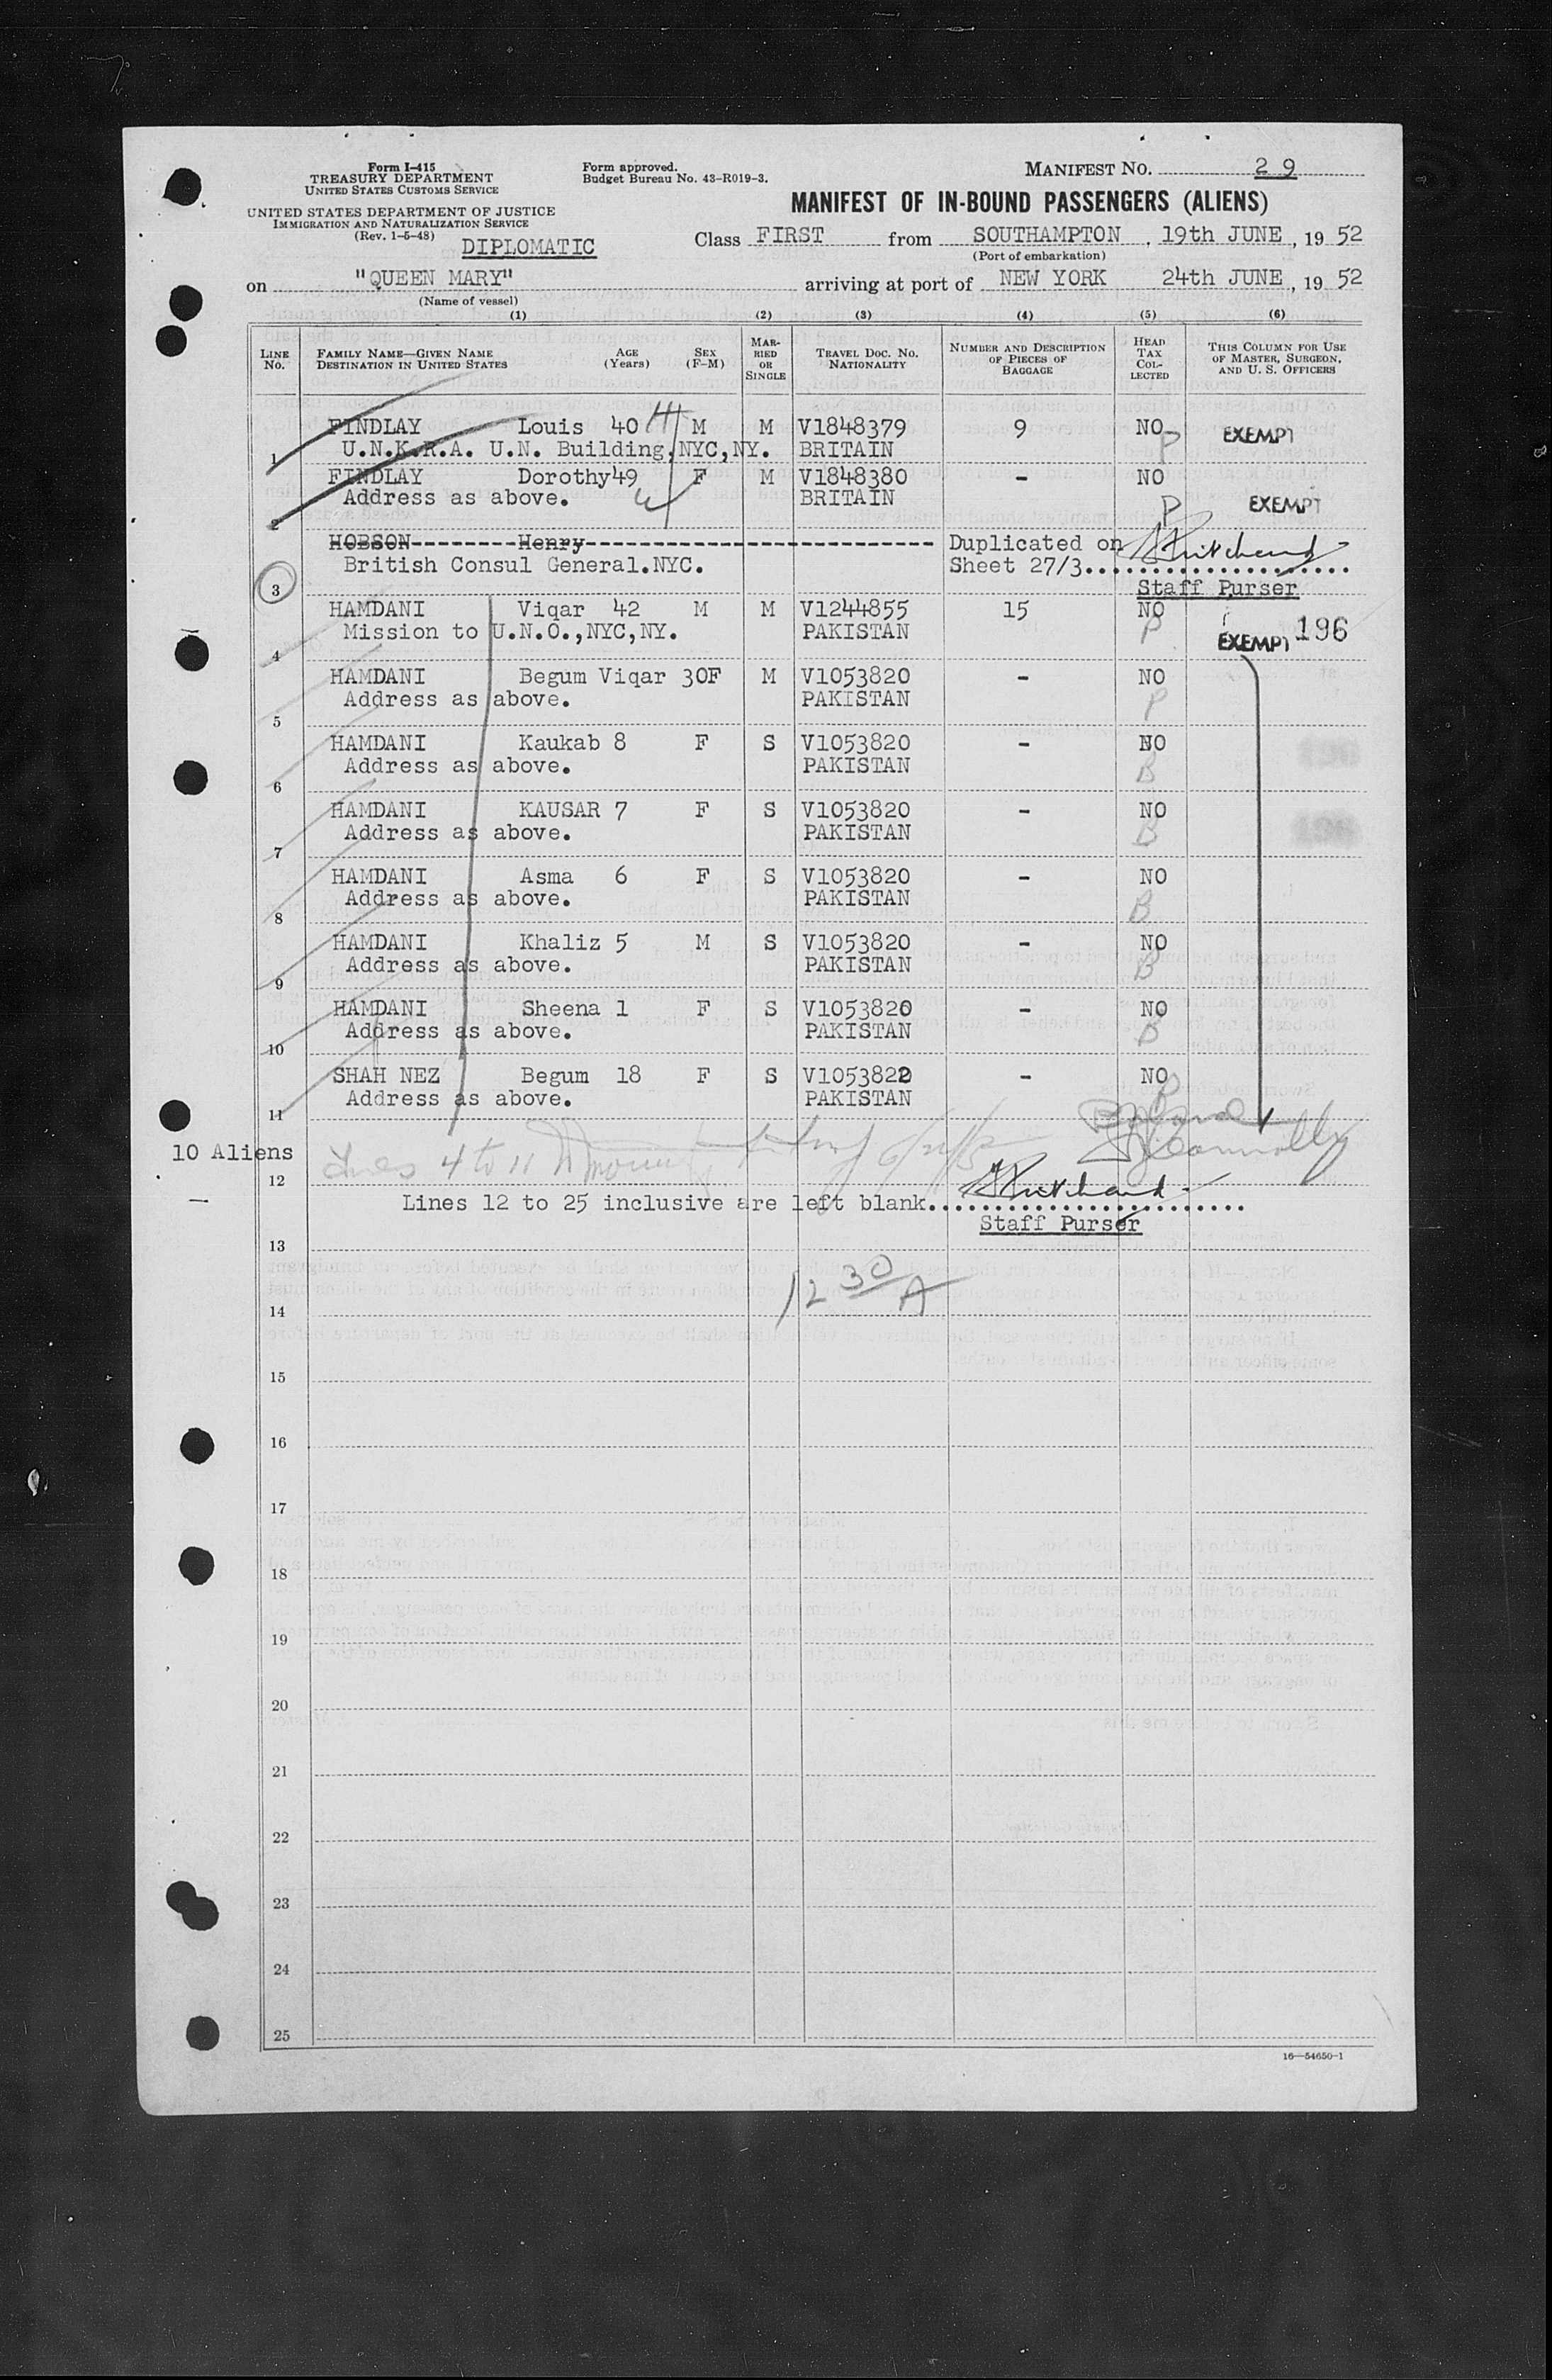 Form I-415
TREASURY DEPARTMENT
UNITED STATES CUSTOMS SERVICE
Form approved.
Budget Bureau No. 43-R019-3.
MANIFEST NO. 29
UNITED STATES DEPARTMENT OF JUSTICE
IMMIGRATION AND NATURALIZATION SERVICE
(Rev. 1-5-48)
MANIFEST OF IN-BOUND PASSENGERS (ALIENS)
DIPLOMATIC
Class FIRST from SOUTHAMPTON, 19th JUNE, 19 52
(Port of embarkation)
on "QUEEN MARY" arriving at port of NEW YORK 24th JUNE, 19 52
(Name of vessel)
(1) (2) (3) (4) (5) (6)
LINE No. FAMILY NAME—GIVEN NAME DESTINATION IN UNITED STATES AGE (Years) SEX (F-M) MARRIED OR SINGLE TRAVEL DOC. NO. NATIONALITY NUMBER AND DESCRIPTION OF PIECES OF BAGGAGE HEAD TAX COLLECTED THIS COLUMN FOR USE OF MASTER, SURGEON, AND U. S. OFFICERS
FINDLAY Louis 40 M M V1848379 9 NO P EXEMPT
1 U.N.K.R.A. U.N. Building,NYC,NY. BRITAIN
FINDLAY Dorothy 49 F M V1848380 - NO
2 Address as above. BRITAIN P EXEMPT
HOBSON--------Henry-------------------------- Duplicated on Pritchard
3 British Consul General.NYC. Sheet 27/3....................
Staff Purser
HAMDANI Viqar 42 M M V1244855 15 NO
4 Mission to U.N.O.,NYC,NY. PAKISTAN P EXEMPT 196
HAMDANI Begum Viqar 30F M V1053820 - NO
5 Address as above. PAKISTAN P
HAMDANI Kaukab 8 F S V1053820 - NO
6 Address as above. PAKISTAN B
HAMDANI KAUSAR 7 F S V1053820 - NO
7 Address as above. PAKISTAN B
HAMDANI Asma 6 F S V1053820 - NO
8 Address as above. PAKISTAN B
HAMDANI Khaliz 5 M S V1053820 - NO
9 Address as above. PAKISTAN B
HAMDANI Sheena 1 F S V1053820 - NO
10 Address as above. PAKISTAN B
SHAH NEZ Begum 18 F S V1053822 - NO
11 Address as above. PAKISTAN
10 Aliens
Lines 4 to 11
12
Lines 12 to 25 inclusive are left blank........................ Pritchard
Staff Purser
13
12 30 A
14
15
16
17
18
19
20
21
22
23
24
25
16—54650-1